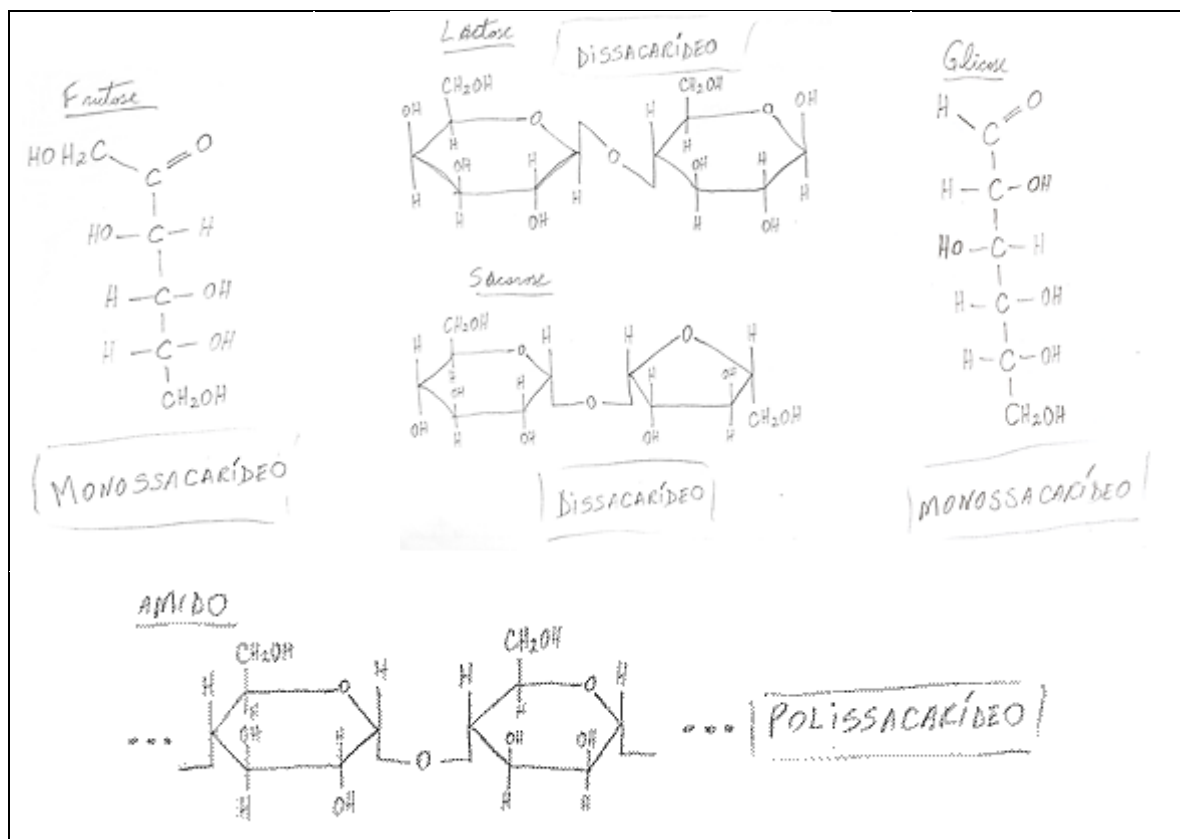 Frutose
HOH₂C O
C
HO – C – H
H – C – OH
H – C – OH
CH₂OH
MONOSSACARÍDEO
Lactose DISSACARÍDEO
CH₂OH CH₂OH
OH O H O OH
H H
OH H O OH H
H H H H
H OH H OH
Sacarose
CH₂OH
H O H H O H
H H H OH
OH O
OH H OH OH H CH₂OH
DISSACARÍDEO
Glicose
H O
C
H – C – OH
HO – C – H
H – C – OH
H – C – OH
CH₂OH
MONOSSACARÍDEO
AMIDO
CH₂OH CH₂OH
H O H H O H
H H
OH H OH OH
... O ... POLISSACARÍDEO
H OH H H